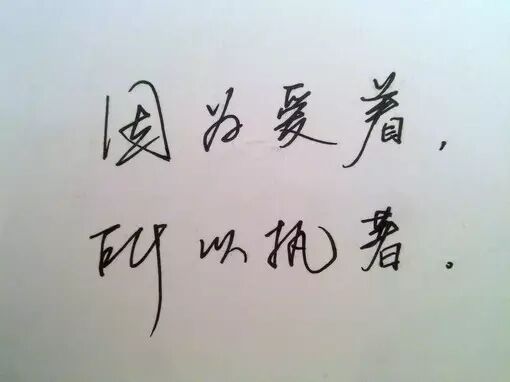 因为爱着，
所以执著。